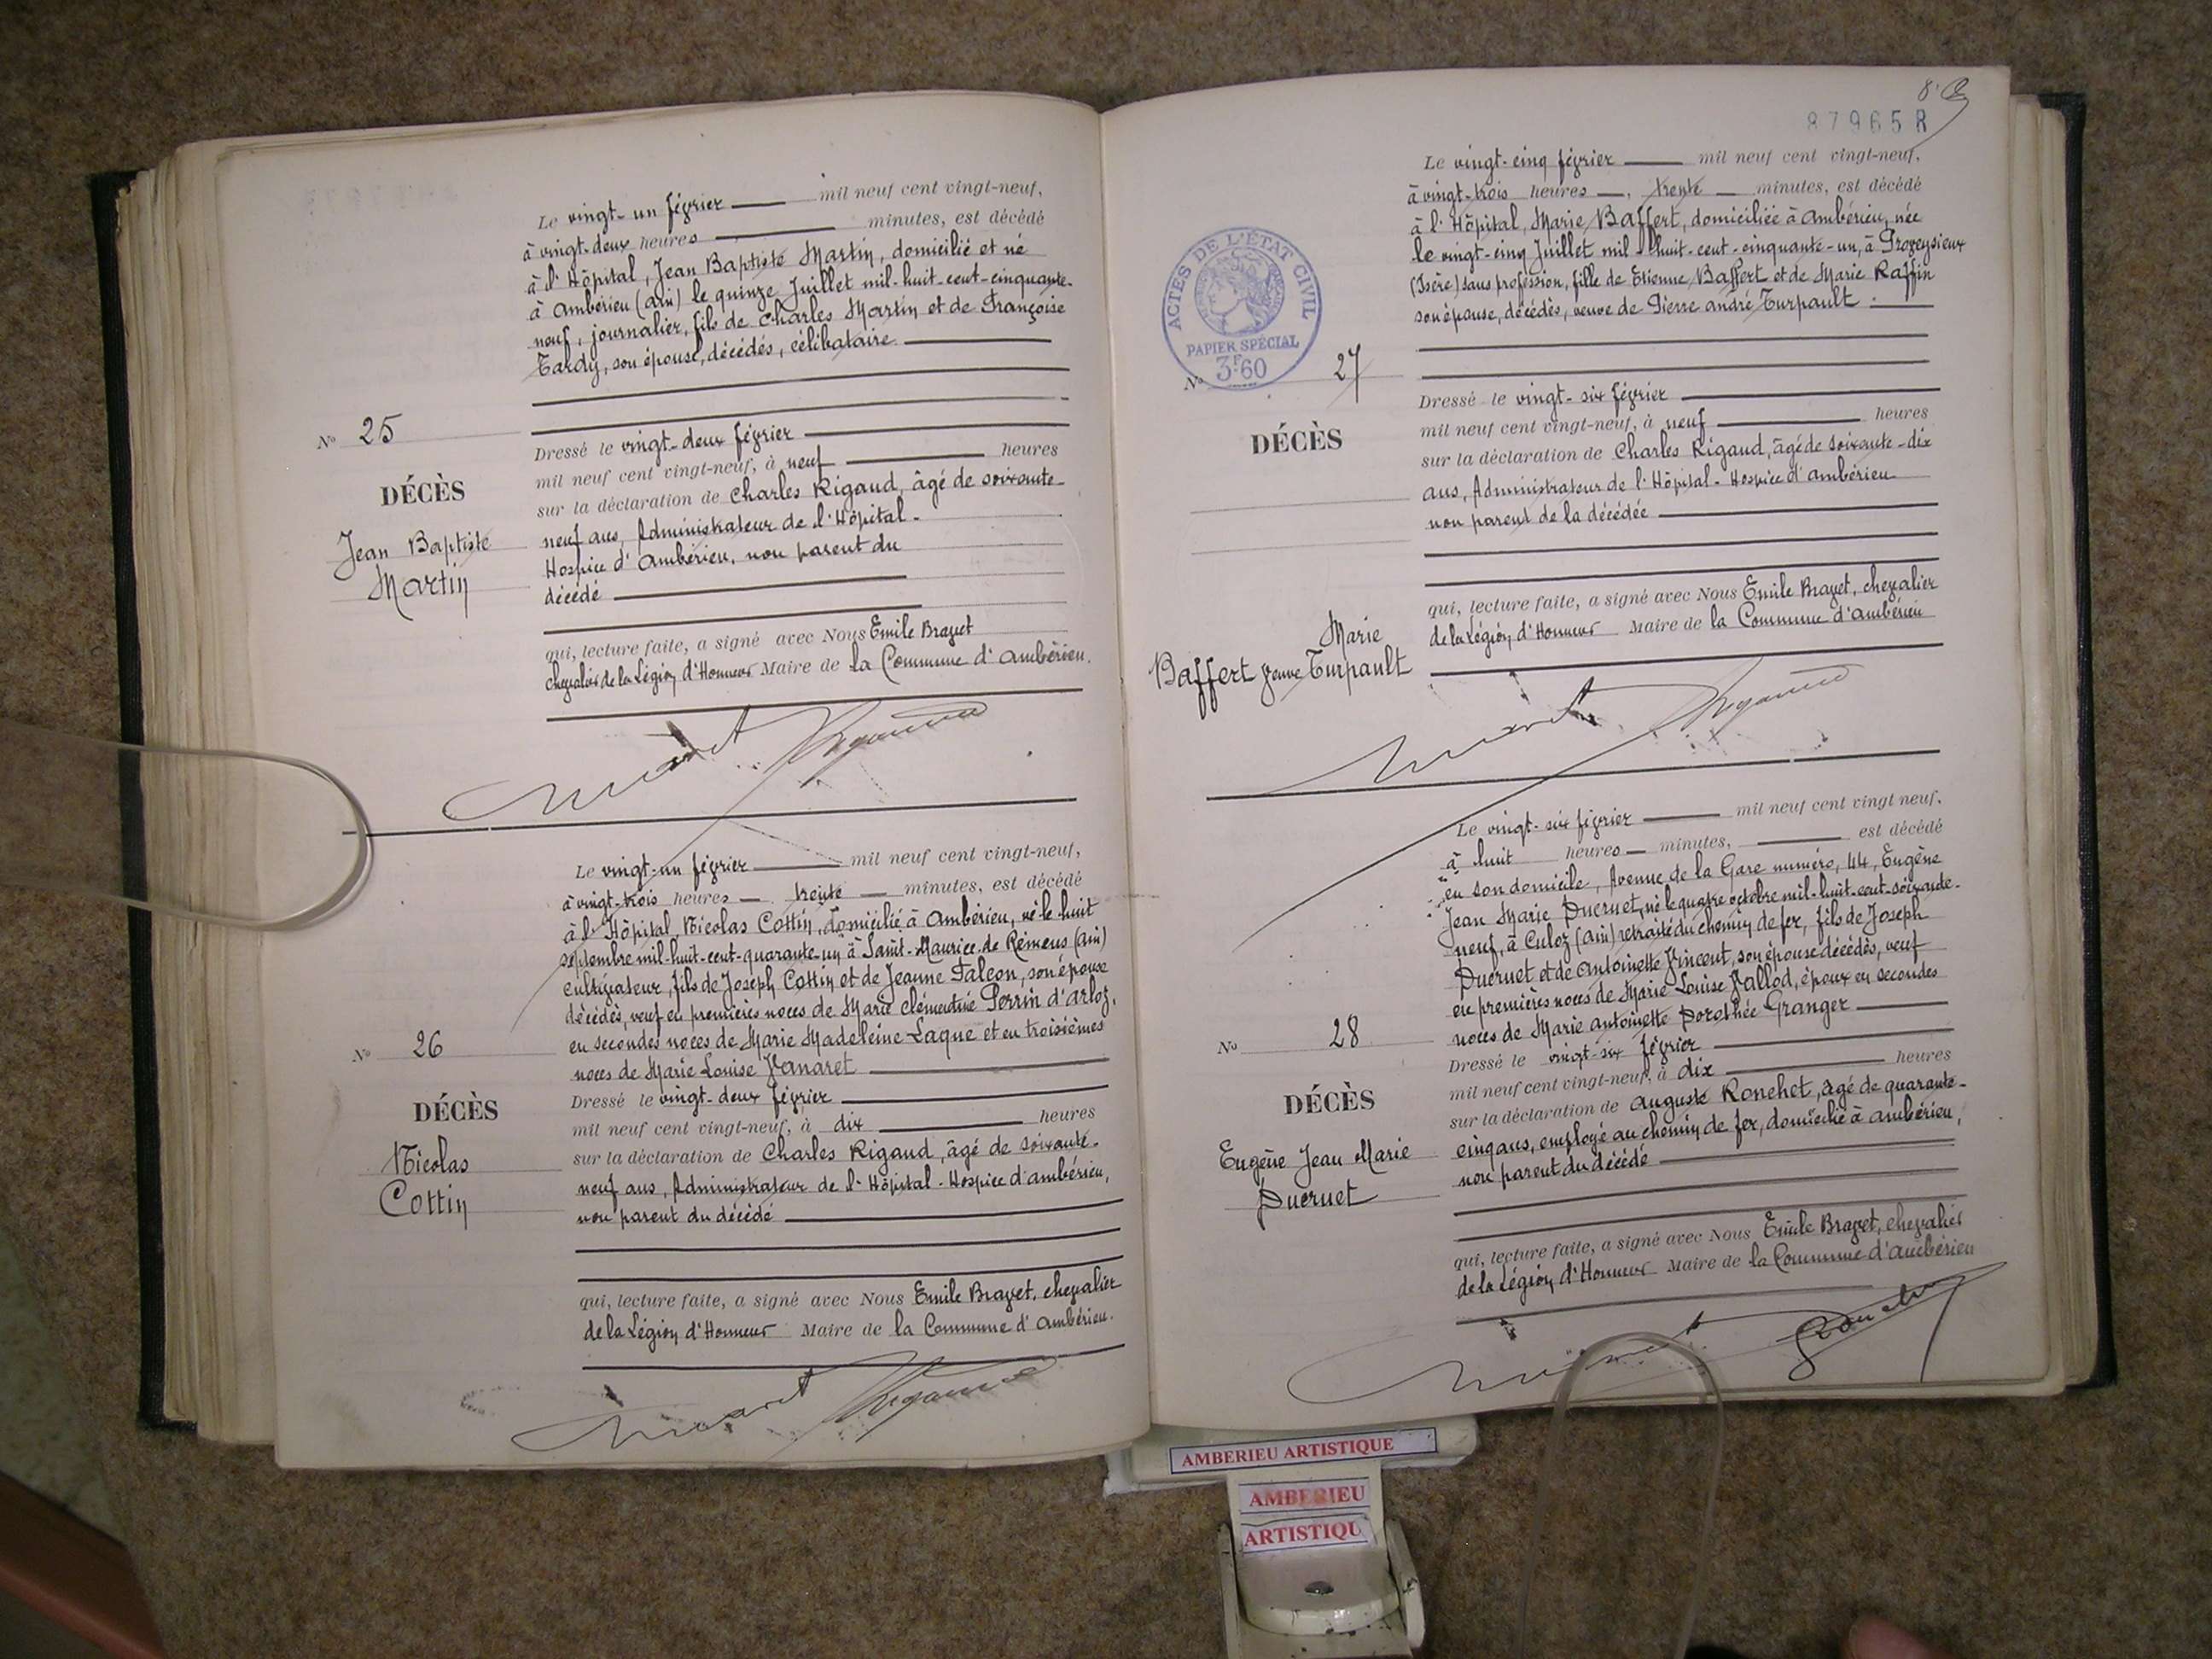 Le vingt-un février mil neuf cent vingt-neuf,
à vingt-deux heures minutes, est décédé
à l'Hôpital, Jean Baptiste Martin, domicilié et né
à Ambérieu (Ain) le quinze Juillet mil-huit-cent-cinquante-
neuf, journalier, fils de Charles Martin et de Françoise
Tardy, son épouse, décédés, célibataire.
N° 25
DÉCÈS
Jean Baptiste
Martin
Dressé le vingt-deux février
mil neuf cent vingt-neuf, à neuf heures
sur la déclaration de Charles Rigaud, âgé de soixante-
neuf ans, Administrateur de l'Hôpital-
Hospice d'Ambérieu, non parent du
décédé
qui, lecture faite, a signé avec Nous Emile Bravet
chevalier de la Légion d'Honneur Maire de la Commune d'Ambérieu.
Le vingt-un février mil neuf cent vingt-neuf,
à vingt-trois heures trente minutes, est décédé
à l'Hôpital, Nicolas Cottin, domicilié à Ambérieu, né le huit
septembre mil-huit-cent-quarante-un à Saint-Maurice-de-Rémens (Ain)
cultivateur, fils de Joseph Cottin et de Jeanne Falcon, son épouse
décédés, veuf en premières noces de Marie Clémentine Perrin d'Arloz,
en secondes noces de Marie Madeleine Laque et en troisièmes
noces de Marie Louise Vanaret
N° 26
DÉCÈS
Nicolas
Cottin
Dressé le vingt-deux février
mil neuf cent vingt-neuf, à dix heures
sur la déclaration de Charles Rigaud, âgé de soixante-
neuf ans, Administrateur de l'Hôpital-Hospice d'Ambérieu,
non parent du décédé
qui, lecture faite, a signé avec Nous Emile Bravet, chevalier
de la Légion d'Honneur Maire de la Commune d'Ambérieu.
87965 R
Le vingt-cinq février mil neuf cent vingt-neuf,
à vingt-trois heures, trente minutes, est décédé
à l'Hôpital, Marie Baffert, domiciliée à Ambérieu, née
le vingt-cinq Juillet mil-huit-cent-cinquante-un, à Proveysieux
(Isère) sans profession, fille de Etienne Baffert et de Marie Raffin
son épouse, décédés, veuve de Pierre André Turpault.
ACTES DE L'ÉTAT CIVIL
PAPIER SPÉCIAL
3F60
N° 27
DÉCÈS
Marie
Baffert veuve Turpault
Dressé le vingt-six février
mil neuf cent vingt-neuf, à neuf heures
sur la déclaration de Charles Rigaud, âgé de soixante-dix
ans, Administrateur de l'Hôpital-Hospice d'Ambérieu
non parent de la décédée
qui, lecture faite, a signé avec Nous Emile Bravet, chevalier
de la Légion d'Honneur Maire de la Commune d'Ambérieu
Le vingt-six février mil neuf cent vingt neuf,
à huit heures minutes, est décédé
en son domicile, Avenue de la Gare numéro, 44, Eugène
Jean Marie Ducruet, né le quatre octobre mil-huit-cent-soixante-
neuf, à Culoz (Ain) retraité du chemin de fer, fils de Joseph
Ducruet et de Antoinette Vincent, son épouse décédés, veuf
en premières noces de Marie Louise Vallod, époux en secondes
noces de Marie Antoinette Dorothée Granger
N° 28
DÉCÈS
Eugène Jean Marie
Ducruet
Dressé le vingt-six février
mil neuf cent vingt-neuf, à dix heures
sur la déclaration de Auguste Ronchet, âgé de quarante-
cinq ans, employé au chemin de fer, domicilié à Ambérieu,
non parent du décédé
qui, lecture faite, a signé avec Nous Emile Bravet, chevalier
de la Légion d'Honneur Maire de la Commune d'Ambérieu
AMBERIEU ARTISTIQUE
AMBERIEU
ARTISTIQU